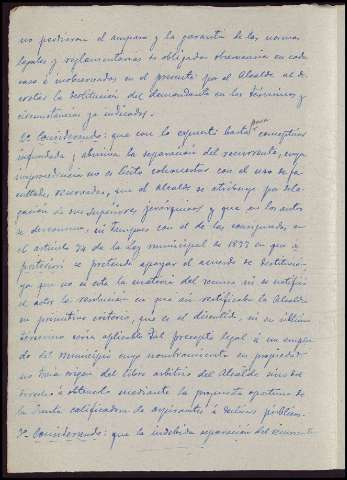 no pudieron el amparo y la garantía de las normas
legales y reglamentarias de obligada observancia en cada
caso é inobservadas en el presente por el Alcalde al de-
cretar la destitución del demandante en los términos y
circunstancias ya indicados.
2º Considerando: que con lo expuesto basta para conceptuar
infundada y abusiva la separación del recurrente, cuya
improcedencia no es lícito cohonestar con el uso de fa-
cultades reservadas, que el Alcalde se atribuye por dele-
gación de sus superiores jerárquicos y que en los autos
se desconocen, ni tampoco con el de las consignadas en
el artículo 74 de la Ley municipal de 1877 en que á
posteriori se pretende apoyar el acuerdo de destitución
ya que ni es esta la materia del recurso ni se notificó
al actor la resolución en que así rectificaba la Alcaldía
su primitivo criterio, que es el discutido, ni en último
término sería aplicable tal precepto legal á un emplea-
do del Municipio cuyo nombramiento en propiedad
no trae origen del libre arbitrio del Alcalde sino del
derecho á obtenerlo mediante la propuesta oportuna de
la Junta calificadora de aspirantes á destinos públicos.
3º Considerando: que la indebida separación del recurrente